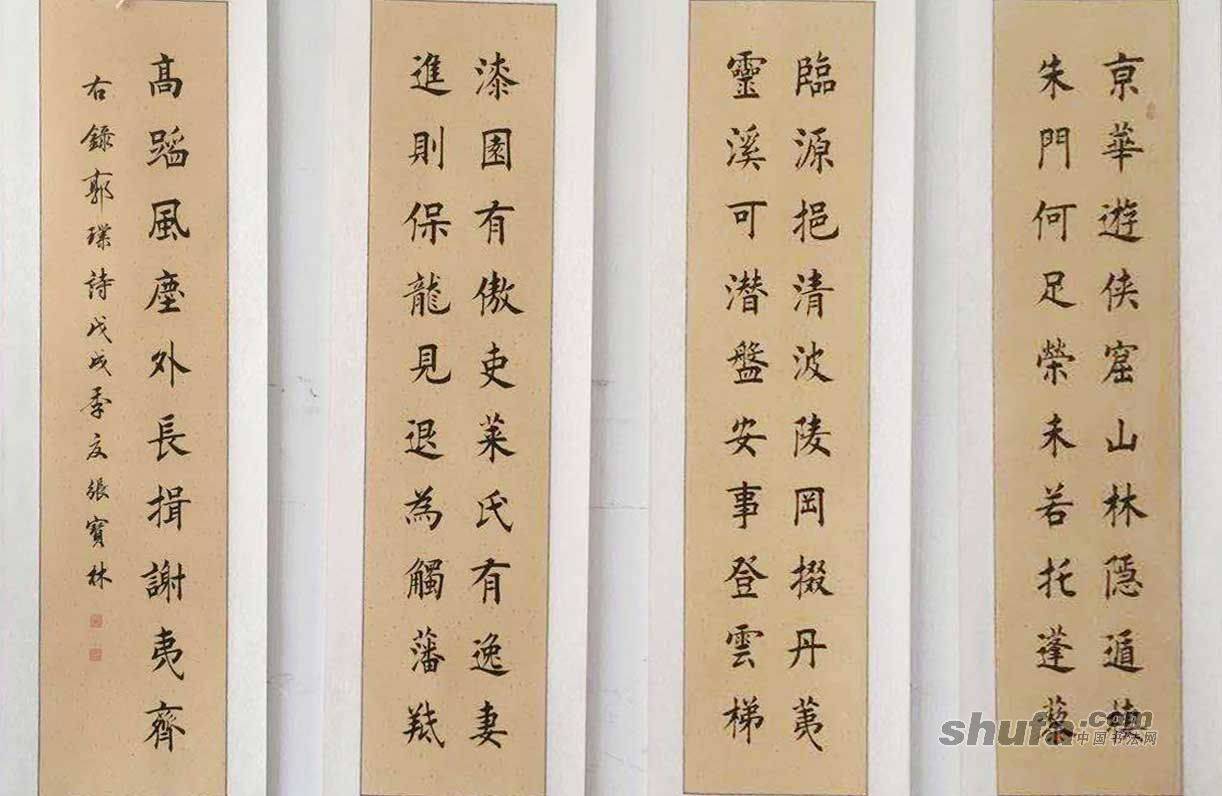 京華遊俠窟山林隱遁棲
朱門何足榮未若托蓬藜
臨源挹清波陵岡掇丹荑
靈溪可潛盤安事登雲梯
漆園有傲吏萊氏有逸妻
進則保龍見退為觸藩羝
高蹈風塵外長揖謝夷齊
右錄郭璞詩戊戌季夏張寶林
shufa.com
中国书法网